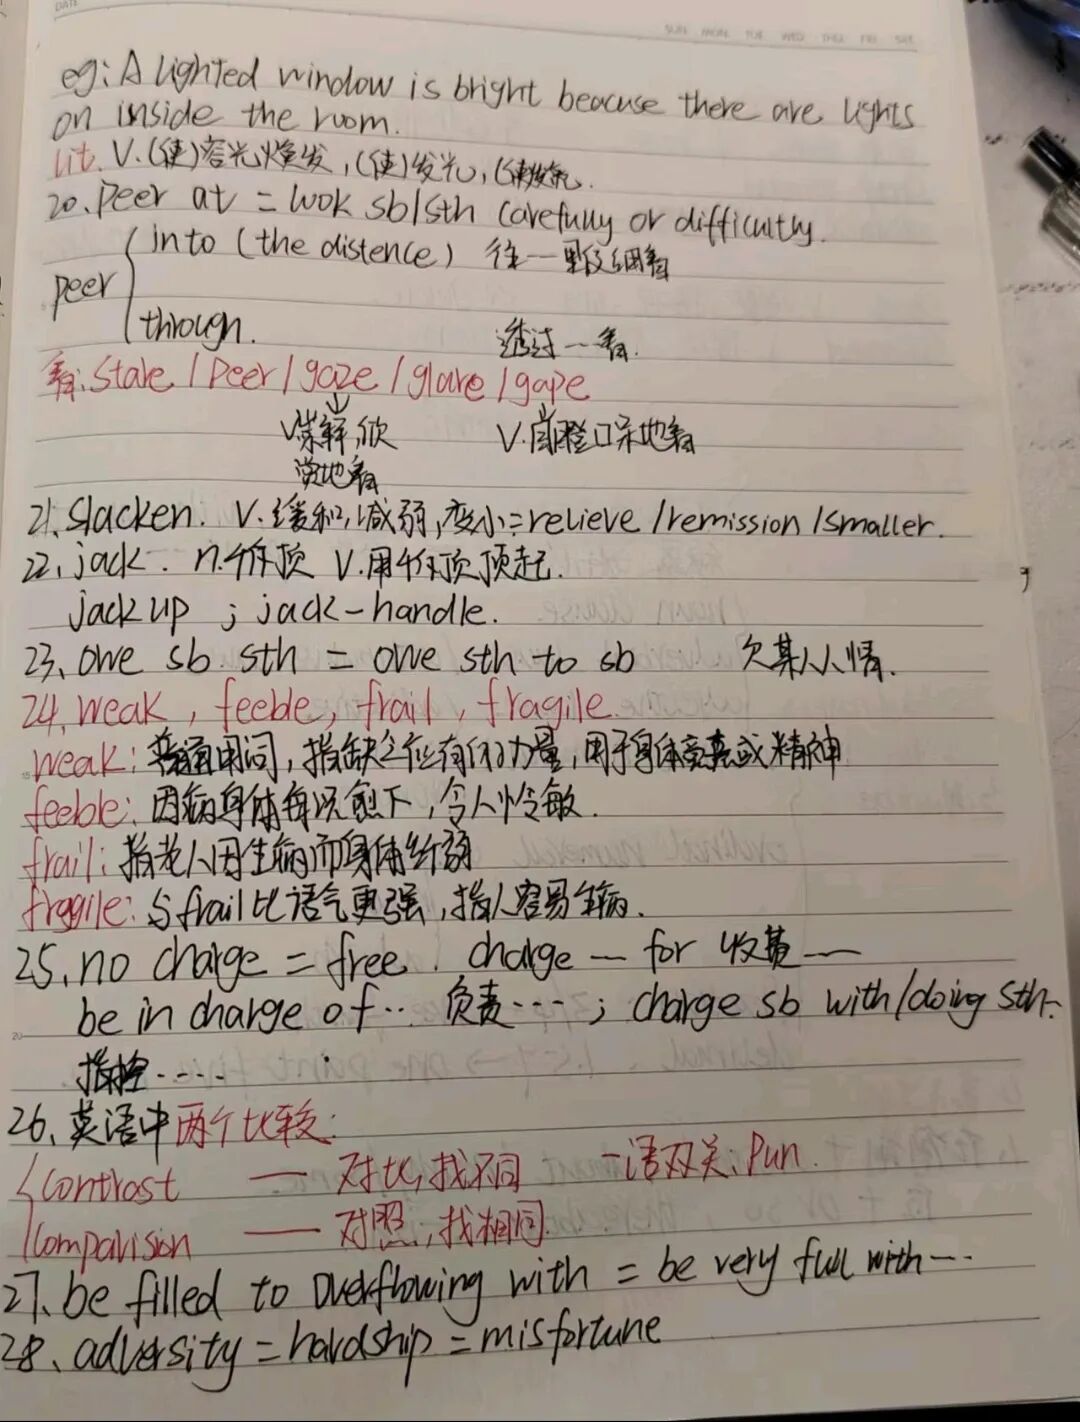 DATE
SUN MON TUE WED THU FRI SAT
eg: A lighted window is bright beacuse there are lights
on inside the room.
lit. V.(使)容光焕发,(使)发光,(使
20、peer at = look sb/sth carefully or difficultly.
peer
into (the distence) 往一里仔细看
through. 透过一看.
看: stare / peer / gaze / glare / gape
V.崇拜,欣赏地看
V.目瞪口呆地看
21、slacken. V.缓和,减弱,变小= relieve / remission / smaller.
22、jack. n.千斤顶 V.用千斤顶顶起.
jack up ; jack-handle.
23、owe sb sth = owe sth to sb 欠某人人情.
24、weak, feeble, frail, fragile.
weak: 普通用词,指缺乏应有的力量,用于身体或精神
feeble: 因病身体每况愈下,令人怜
frail: 指老人因生病而身体纤弱
fragile: 与frail比语气更强,指人容易生病.
25、no charge = free. charge — for 收费—
be in charge of.. 负责···; charge sb with/doing sth.
20
指控····
26、英语中两个比较:
Contrast — 对比,找不同 一语双关: Pun.
Comparision — 对照,找相同.
27、be filled to overflowing with = be very full with—
28、adversity = hardship = misfortune